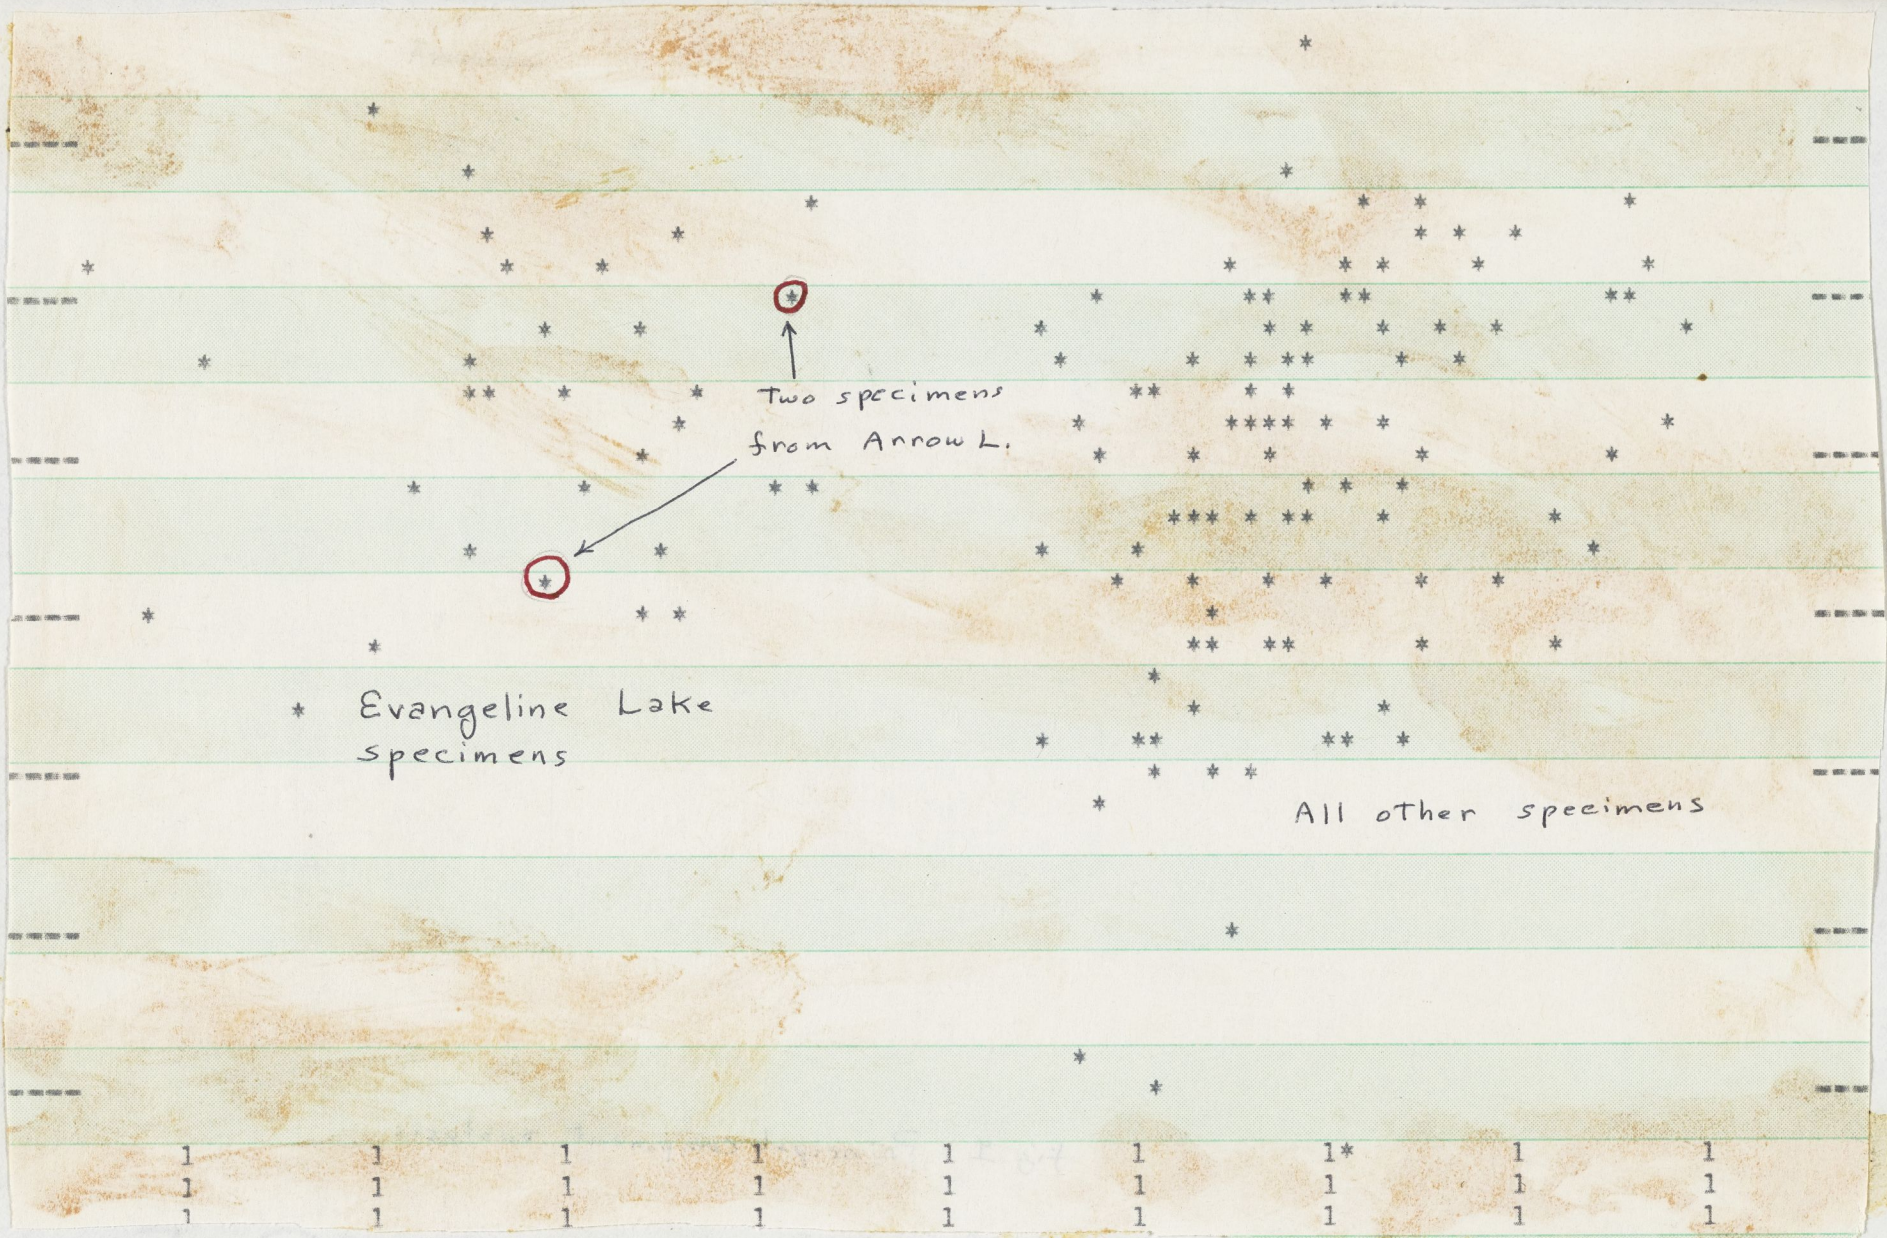 Two specimens
from Arrow L.
Evangeline Lake
specimens
All other specimens
1 1 1 1 1 1 1 1 1
1 1 1 1 1 1 1 1 1
1 1 1 1 1 1 1 1 1